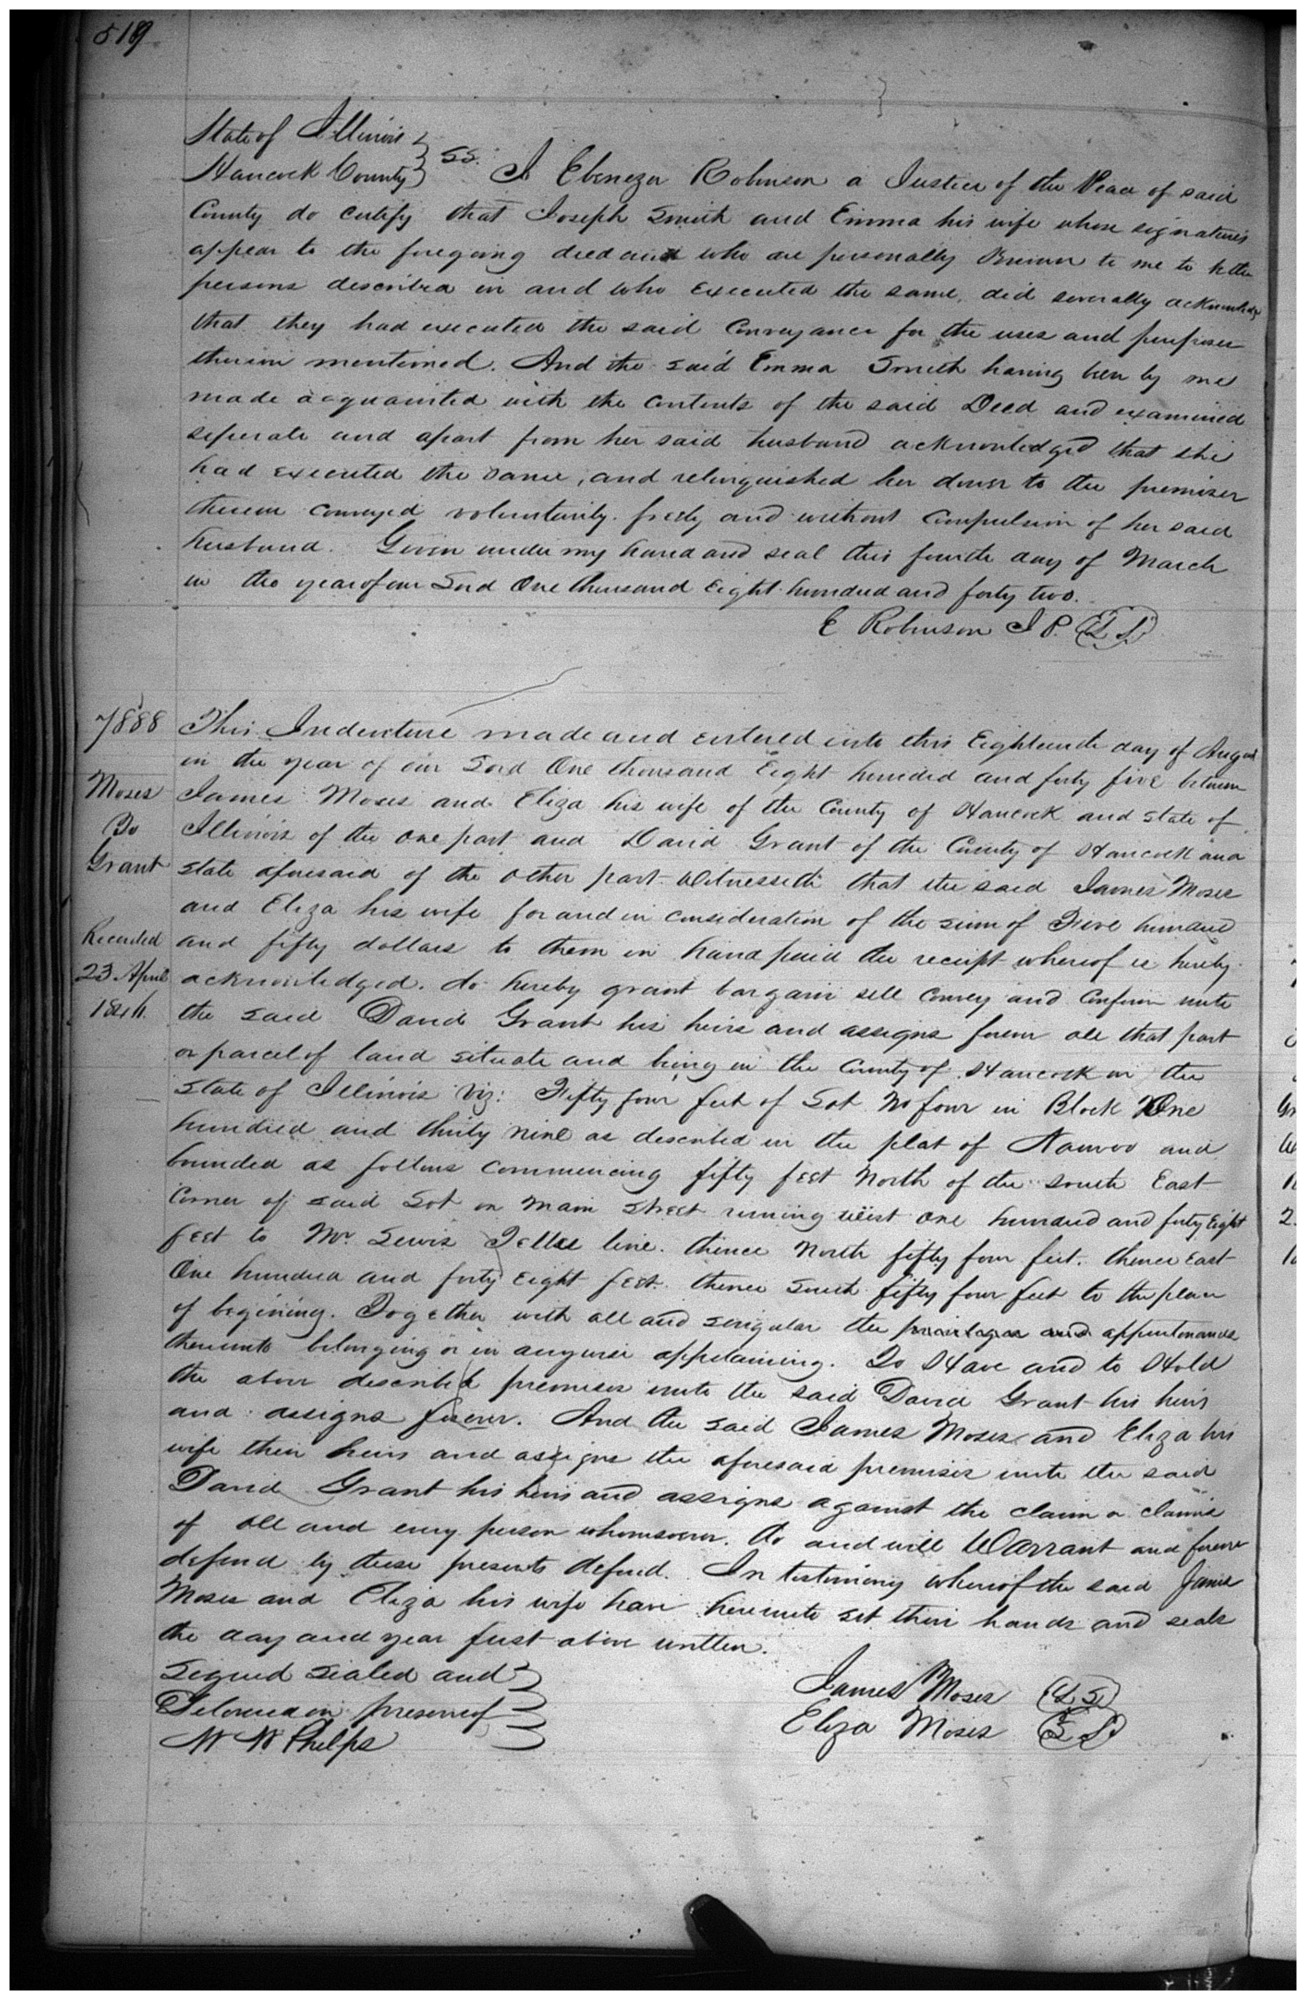 519
State of Illinois
Hancock County } SS. I Ebenezer Robinson a Justice of the Peace of said
County do certify that Joseph Smith and Emma his wife whose signatures
appear to the foregoing deed and who are personally known to me to be the
persons described in and who executed the same, did severally acknowledge
that they had executed the said Conveyance for the uses and purposes
therein mentioned. And the said Emma Smith having been by me
made acquainted with the contents of the said Deed and examined
seperate and apart from her said husband acknowledged that she
had executed the same, and relinquished her dower to the premises
therein conveyed voluntarily. freely and without compulsion of her said
husband. Given under my hand and seal this fourth day of March
in the year of our Lord One thousand Eight hundred and forty two.
E Robinson J P. (L S)
7888
Moses
To
Grant
Recorded
23 April
1846.
This Indenture made and entered into this Eighteenth day of August
in the year of our Lord One thousand Eight hundred and forty five between
James Moses and Eliza his wife of the County of Hancock and state of
Illinois of the one part and David Grant of the County of Hancock and
state aforesaid of the other part. Witnesseth that the said James Moses
and Eliza his wife for and in consideration of the sum of Five hundred
and fifty dollars to them in hand paid the receipt whereof is hereby
acknowledged. do hereby grant bargain sell convey and confirm unto
the said David Grant his heirs and assigns forever all that part
or parcel of land situate and being in the County of Hancock in the
State of Illinois Viz: Fifty four feet of Lot No four in Block One
hundred and thirty nine as described in the plat of Nauvoo and
bounded as follows commencing fifty feet North of the south East
Corner of said Lot on Main Street running west one hundred and forty Eight
feet to Mr. Lewis line. thence North fifty four feet. thence East
One hundred and forty Eight feet. thence South fifty four feet to the place
of begining. Together with all and singular the privilages and appurtenances
thereunto belonging or in anywise appertaining. To Have and to Hold
the above described premises unto the said David Grant his heirs
and assigns forever. And the said James Moses and Eliza his
wife their heirs and assigns the aforesaid premises unto the said
David Grant his heirs and assigns against the claim or claims
of all and every person whomsoever. do and will Warrant and forever
defend by these presents defend. In testimony whereof the said James
Moses and Eliza his wife have hereunto set their hands and seals
the day and year first above written.
Signed sealed and
Delivered in presence of
W W Phelps
James Moses (L S)
Eliza Moses (L S)